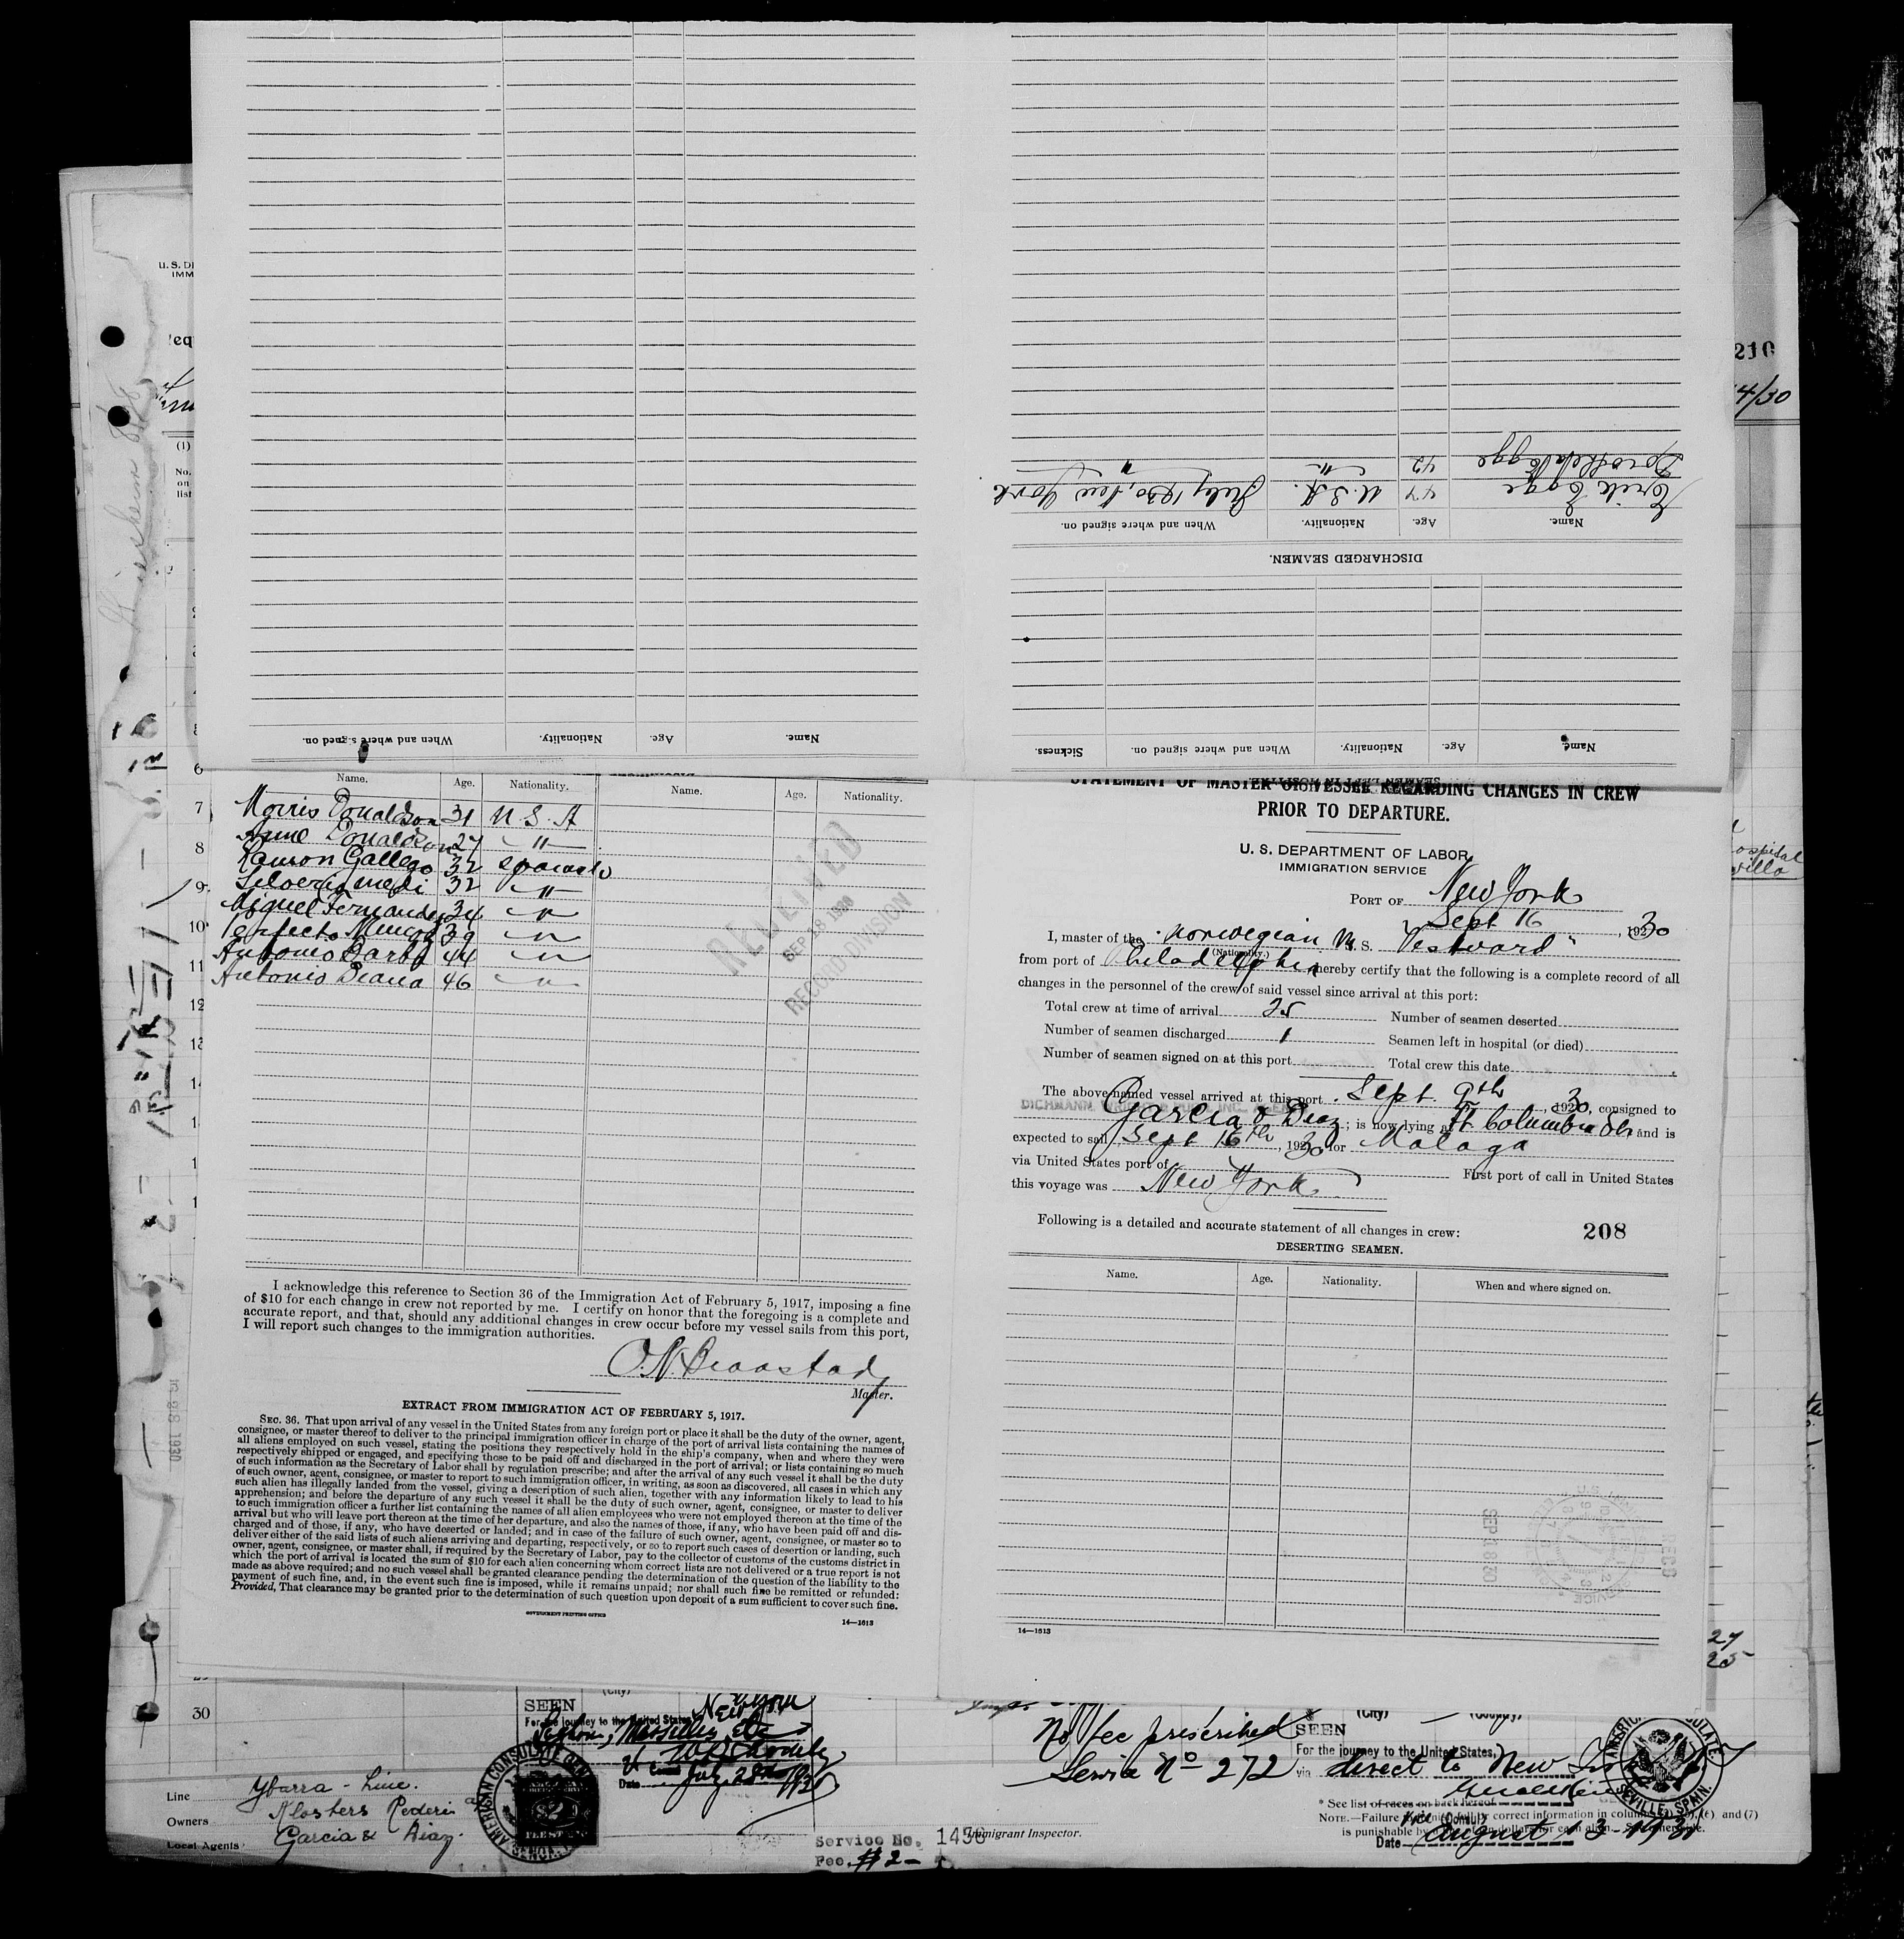 U. S. DE
IMM
210
4/30
(1)
No.
on
list
Erik Egge 47 U.S.A. July 1930, New York
Dorothea Egge 42 " "
Name. Age. Nationality. When and where signed on.
DISCHARGED SEAMEN.
Name. Age. Nationality. When and where signed on. Sickness.
Name. Age. Nationality. When and where signed on.
Name. Age. Nationality. Name. Age. Nationality.
Morris Donaldson 31 U.S.A
Anne Donaldson 27 "
Ramon Gallego 32 spanish
32 "
Miguel Fernandez 34 "
Perfecto 39 "
Antonio 44 "
Antonio Diana 46 "
6
7
8
9
10
11
12
RECEIVED
SEP 18 1930
RECORD DIVISION
I acknowledge this reference to Section 36 of the Immigration Act of February 5, 1917, imposing a fine
of $10 for each change in crew not reported by me. I certify on honor that the foregoing is a complete and
accurate report, and that, should any additional changes in crew occur before my vessel sails from this port,
I will report such changes to the immigration authorities.
Master.
EXTRACT FROM IMMIGRATION ACT OF FEBRUARY 5, 1917.
SEC. 36. That upon arrival of any vessel in the United States from any foreign port or place it shall be the duty of the owner, agent,
consignee, or master thereof to deliver to the principal immigration officer in charge of the port of arrival lists containing the names of
all aliens employed on such vessel, stating the positions they respectively hold in the ship's company, when and where they were
respectively shipped or engaged, and specifying those to be paid off and discharged in the port of arrival; or lists containing so much
of such information as the Secretary of Labor shall by regulation prescribe; and after the arrival of any such vessel it shall be the duty
of such owner, agent, consignee, or master to report to such immigration officer, in writing, as soon as discovered, all cases in which any
such alien has illegally landed from the vessel, giving a description of such alien, together with any information likely to lead to his
apprehension; and before the departure of any such vessel it shall be the duty of such owner, agent, consignee, or master to deliver
to such immigration officer a further list containing the names of all alien employees who were not employed thereon at the time of the
arrival but who will leave port thereon at the time of her departure, and also the names of those, if any, who have been paid off and dis-
charged and of those, if any, who have deserted or landed; and in case of the failure of such owner, agent, consignee, or master so to
deliver either of the said lists of such aliens arriving and departing, respectively, or so to report such cases of desertion or landing, such
owner, agent, consignee, or master shall, if required by the Secretary of Labor, pay to the collector of customs of the customs district in
which the port of arrival is located the sum of $10 for each alien concerning whom correct lists are not delivered or a true report is not
made as above required; and no such vessel shall be granted clearance pending the determination of the question of the liability to the
payment of such fine, and, in the event such fine is imposed, while it remains unpaid; nor shall such fine be remitted or refunded:
Provided, That clearance may be granted prior to the determination of such question upon deposit of a sum sufficient to cover such fine.
GOVERNMENT PRINTING OFFICE
14—1613
STATEMENT OF MASTER OF VESSEL REGARDING CHANGES IN CREW
PRIOR TO DEPARTURE.
U. S. DEPARTMENT OF LABOR
IMMIGRATION SERVICE
PORT OF New York
Sept 16, 1930
I, master of the norwegian M. S. "Vestvard"
(Nationality.)
from port of Philadelphia hereby certify that the following is a complete record of all
changes in the personnel of the crew of said vessel since arrival at this port:
Total crew at time of arrival 25 Number of seamen deserted
Number of seamen discharged 1 Seamen left in hospital (or died)
Number of seamen signed on at this port Total crew this date
The above-named vessel arrived at this port Sept. 9th, 1930, consigned to
Garcia & Diaz; is now lying at ft Columbia St, and is
expected to sail Sept 16th, 1930 for Malaga
via United States port of First port of call in United States
this voyage was New York
Following is a detailed and accurate statement of all changes in crew: 208
DESERTING SEAMEN.
Name. Age. Nationality. When and where signed on.
SEP 18 30
14—1613
27
25
30
SEEN
For the journey to the United States
Date July 28
AMERICAN CONSULATE GEN
$2
Line Ybarra - Line.
Owners Klosters Rederi
Local Agents Garcia & Diaz.
Service No. 1436
Fee $2—
Immigrant Inspector.
No fee prescribed
Service No 272
(City) (Country)
SEEN
For the journey to the United States,
via direct to New York
AMERICAN CONSULATE. SEVILLE, SPAIN.
* See list of races on back hereof
Vice Consul
Date August 13 - 1930